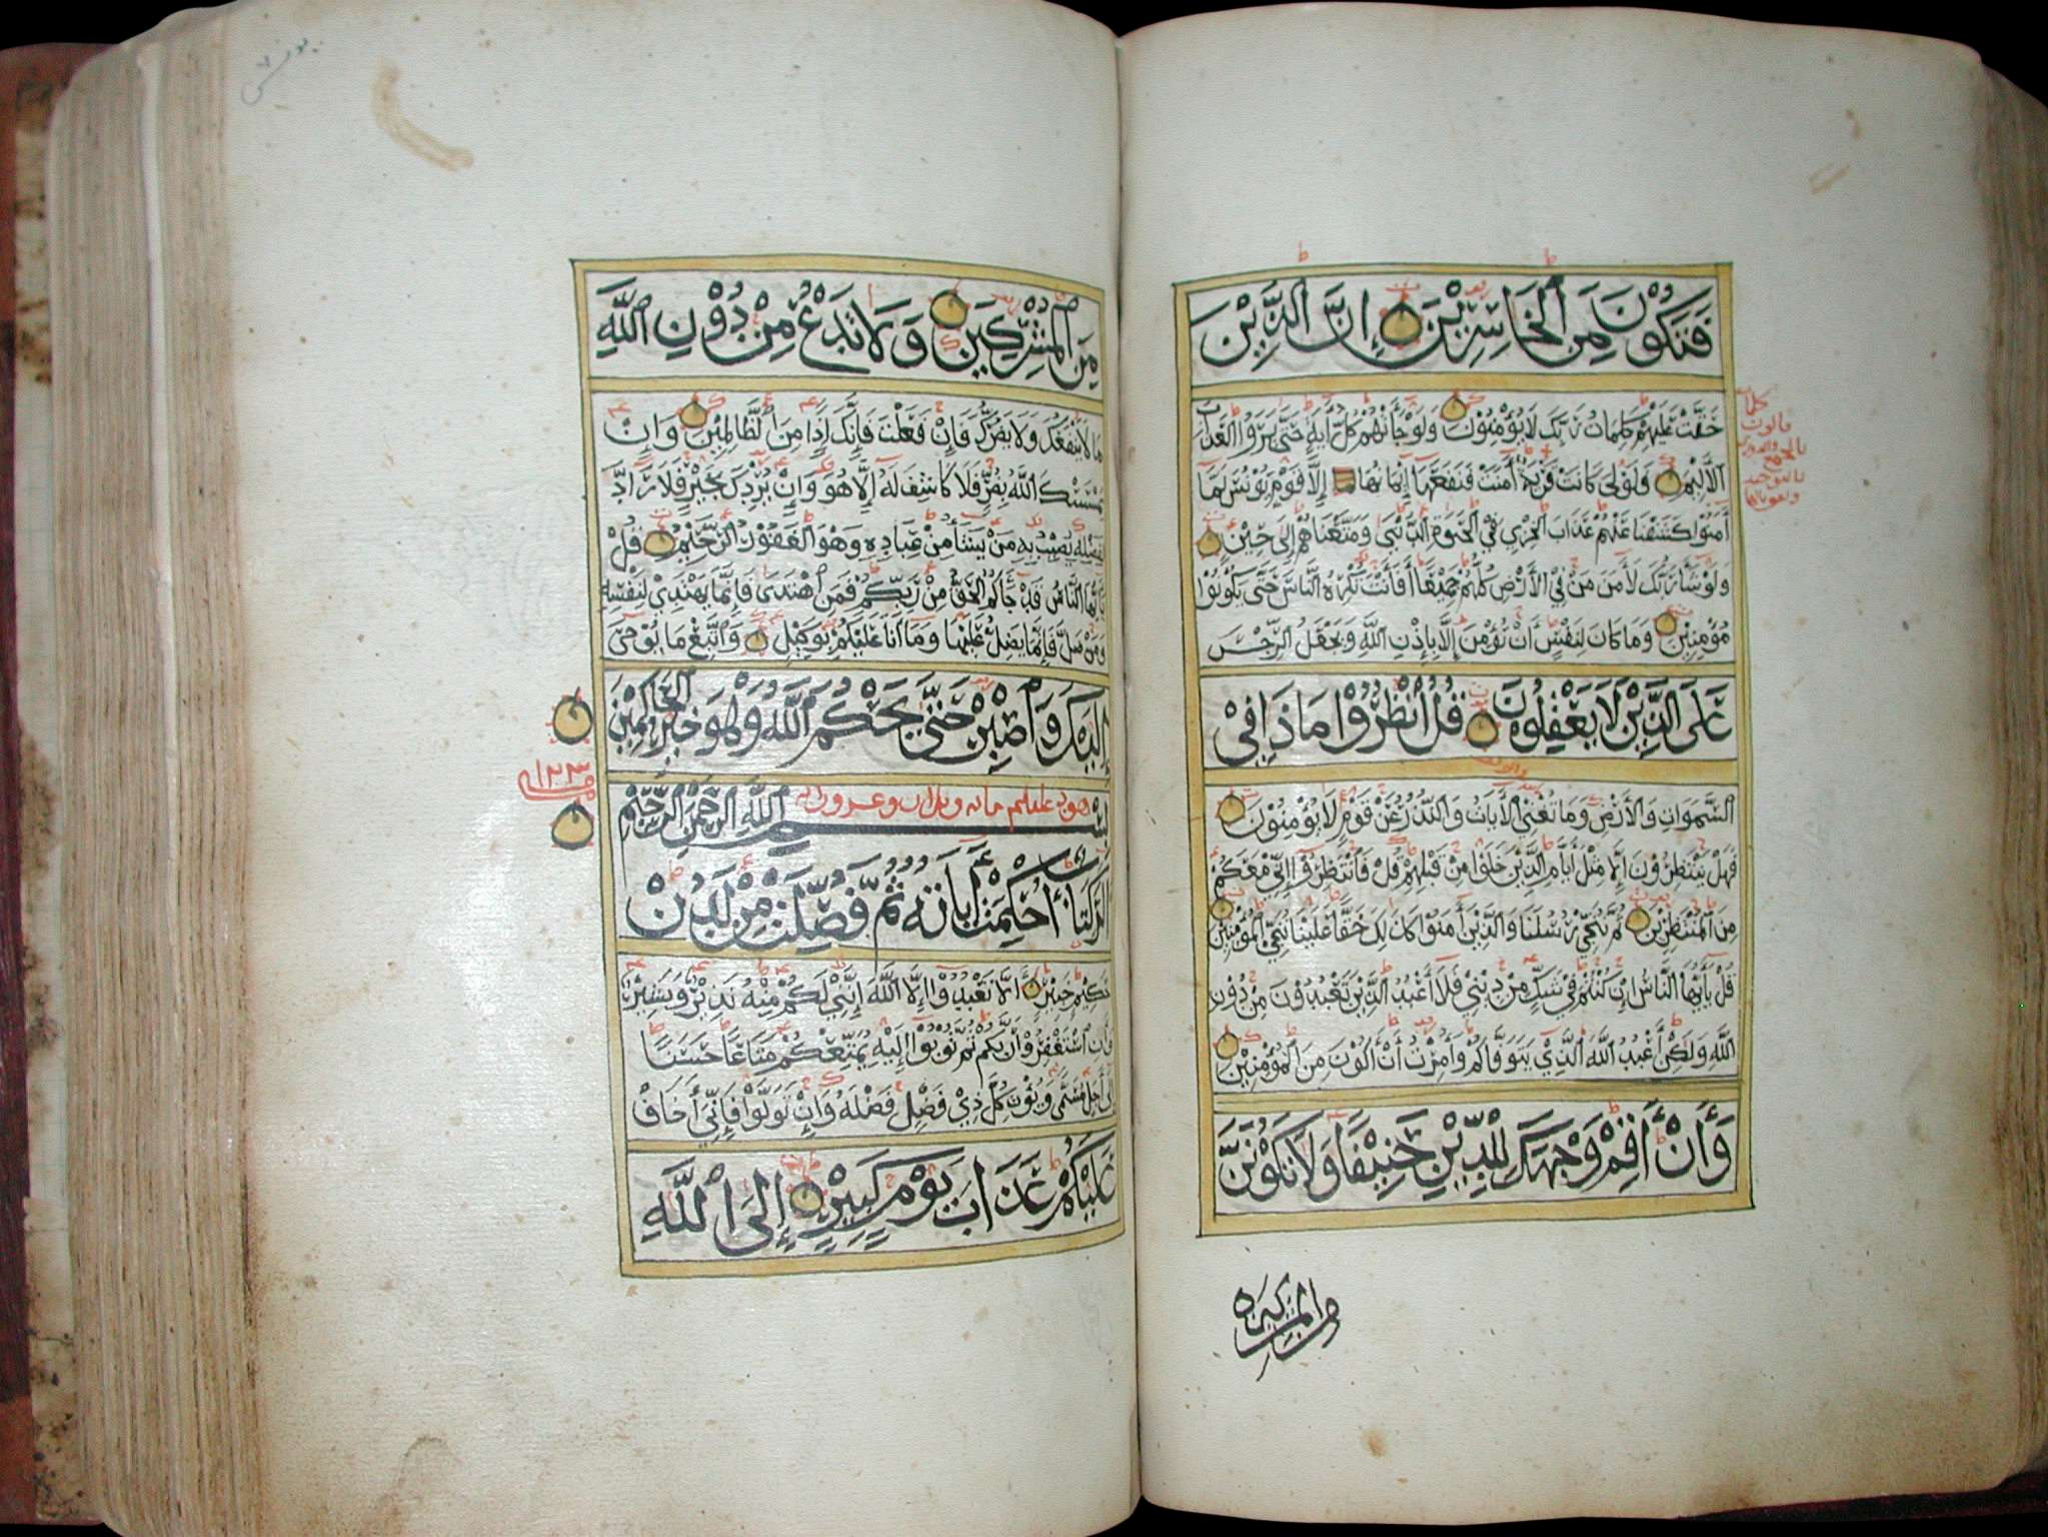 فَتَكُوْنَ مِنَ الْخَاسِرِيْنَ إِنَّ الَّذِيْنَ
حَقَّتْ عَلَيْهِمْ كَلِمَاتُ رَبِّكَ لَا يُؤْمِنُوْنَ وَلَوْ جَآءَتْهُمْ كُلُّ آيَةٍ حَتَّى يَرَوُا الْعَذَابَ
الْأَلِيْمَ فَلَوْلَا كَانَتْ قَرْيَةٌ آمَنَتْ فَنَفَعَهَا إِيْمَانُهَا إِلَّا قَوْمَ يُوْنُسَ لَمَّا
آمَنُوْا كَشَفْنَا عَنْهُمْ عَذَابَ الْخِزْيِ فِي الْحَيٰوةِ الدُّنْيَى وَمَتَّعْنَاهُمْ إِلَى حِيْنٍ
وَلَوْ شَآءَ رَبُّكَ لَأٓمَنَ مَنْ فِي الْأَرْضِ كُلُّهُمْ جَمِيْعًا أَفَأَنْتَ تُكْرِهُ النَّاسَ حَتَّى يَكُوْنُوْا
مُؤْمِنِيْنَ وَمَا كَانَ لِنَفْسٍ أَنْ تُؤْمِنَ إِلَّا بِإِذْنِ اللَّهِ وَيَجْعَلُ الرِّجْسَ
عَلَى الَّذِيْنَ لَا يَعْقِلُوْنَ قُلِ انْظُرُوْا مَاذَا فِيْ
السَّمَوَاتِ وَالْأَرْضِ وَمَا تُغْنِي الْأٓيَاتُ وَالنُّذُرُ عَنْ قَوْمٍ لَا يُؤْمِنُوْنَ
فَهَلْ يَنْتَظِرُوْنَ إِلَّا مِثْلَ أَيَّامِ الَّذِيْنَ خَلَوْا مِنْ قَبْلِهِمْ قُلْ فَانْتَظِرُوْٓا إِنِّيْ مَعَكُمْ
مِنَ الْمُنْتَظِرِيْنَ ثُمَّ نُنَجِّيْ رُسُلَنَا وَالَّذِيْنَ آمَنُوْا كَذَلِكَ حَقًّا عَلَيْنَا نُنَجِّي الْمُؤْمِنِيْنَ
قُلْ يَأَيُّهَا النَّاسُ إِنْ كُنْتُمْ فِيْ شَكٍّ مِنْ دِيْنِيْ فَلَآ أَعْبُدُ الَّذِيْنَ تَعْبُدُوْنَ مِنْ دُوْنِ
اللَّهِ وَلَكِنْ أَعْبُدُ اللَّهَ الَّذِيْ يَتَوَفَّاكُمْ وَأُمِرْتُ أَنْ أَكُوْنَ مِنَ الْمُؤْمِنِيْنَ
وَأَنْ أَقِمْ وَجْهَكَ لِلدِّيْنِ حَنِيْفًا وَلَا تَكُوْنَنَّ
يونس
مِنَ الْمُشْرِكِيْنَ وَلَا تَدْعُ مِنْ دُوْنِ اللَّهِ
مَا لَا يَنْفَعُكَ وَلَا يَضُرُّكَ فَإِنْ فَعَلْتَ فَإِنَّكَ إِذًا مِنَ الظَّالِمِيْنَ وَإِنْ
يَمْسَسْكَ اللَّهُ بِضُرٍّ فَلَا كَاشِفَ لَهُ إِلَّا هُوَ وَإِنْ يُرِدْكَ بِخَيْرٍ فَلَا رَآدَّ
لِفَضْلِهِ يُصِيْبُ بِهِ مَنْ يَشَآءُ مِنْ عِبَادِهِ وَهُوَ الْغَفُوْرُ الرَّحِيْمُ قُلْ
يَأَيُّهَا النَّاسُ قَدْ جَآءَكُمُ الْحَقُّ مِنْ رَبِّكُمْ فَمَنِ اهْتَدَى فَإِنَّمَا يَهْتَدِيْ لِنَفْسِهِ
وَمَنْ ضَلَّ فَإِنَّمَا يَضِلُّ عَلَيْهَا وَمَآ أَنَا عَلَيْكُمْ بِوَكِيْلٍ وَاتَّبِعْ مَا يُوْحَىٓ
إِلَيْكَ وَاصْبِرْ حَتَّى يَحْكُمَ اللَّهُ وَهُوَ خَيْرُ الْحَاكِمِيْنَ
١٢٣
بِسْمِ اللَّهِ الرَّحْمَنِ الرَّحِيْمِ
الٓر كِتَابٌ أُحْكِمَتْ آيَاتُهُ ثُمَّ فُصِّلَتْ مِنْ لَدُنْ
حَكِيْمٍ خَبِيْرٍ أَلَّا تَعْبُدُوْٓا إِلَّا اللَّهَ إِنَّنِيْ لَكُمْ مِنْهُ نَذِيْرٌ وَبَشِيْرٌ
وَأَنِ اسْتَغْفِرُوْا رَبَّكُمْ ثُمَّ تُوْبُوْٓا إِلَيْهِ يُمَتِّعْكُمْ مَتَاعًا حَسَنًا
إِلَى أَجَلٍ مُسَمًّى وَيُؤْتِ كُلَّ ذِيْ فَضْلٍ فَضْلَهُ وَإِنْ تَوَلَّوْا فَإِنِّيٓ أَخَافُ
عَلَيْكُمْ عَذَابَ يَوْمٍ كَبِيْرٍ إِلَى اللَّهِ